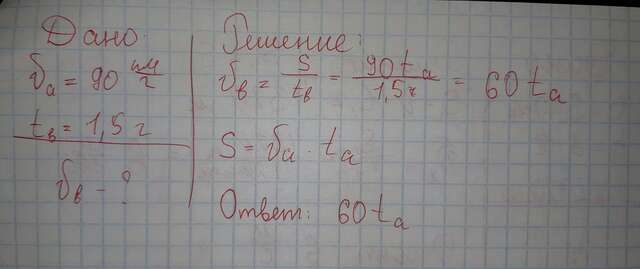 Дано:
υₐ = 90 км/г
tв = 1,5 г
υв - ?
Решение:
υв = S/tв = 90tₐ/1,5ч = 60tₐ
S = υₐ · tₐ
Ответ: 60tₐ